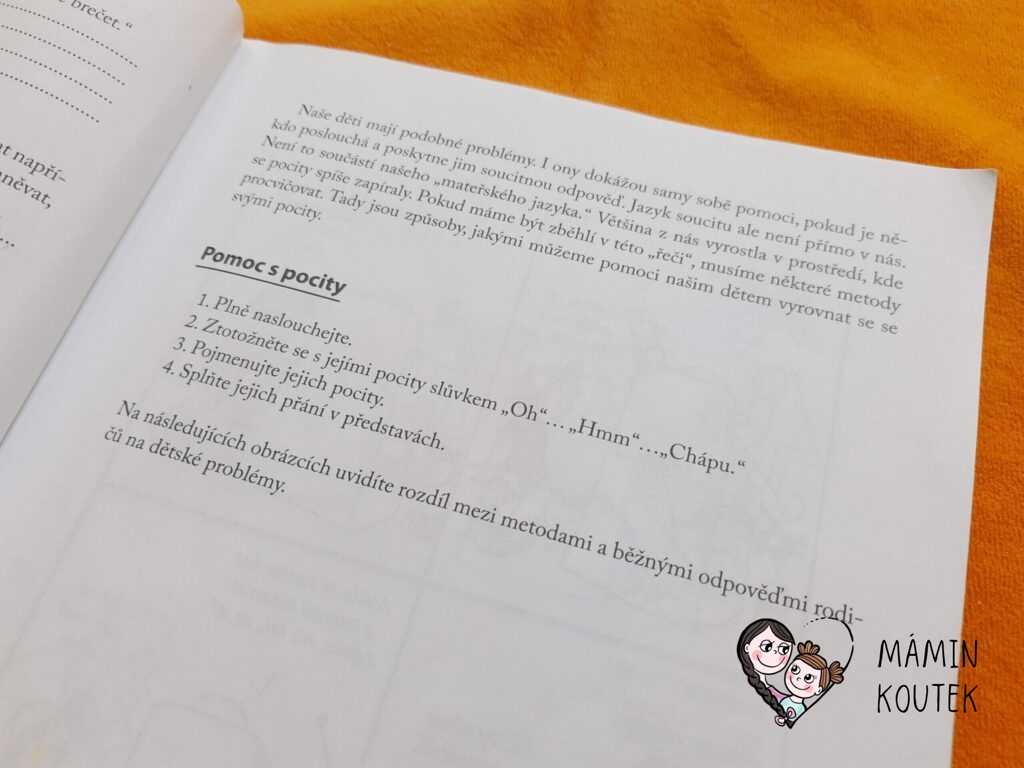 brečet. “
at napří-
něvat,
Naše děti mají podobné problémy. I ony dokážou samy sobě pomoci, pokud je ně-
kdo poslouchá a poskytne jim soucitnou odpověď. Jazyk soucitu ale není přímo v nás.
Není to součástí našeho „mateřského jazyka.“ Většina z nás vyrostla v prostředí, kde
se pocity spíše zapíraly. Pokud máme být zběhlí v této „řeči“, musíme některé metody
procvičovat. Tady jsou způsoby, jakými můžeme pomoci našim dětem vyrovnat se se
svými pocity.
Pomoc s pocity
1. Plně naslouchejte.
2. Ztotožněte se s jejími pocity slůvkem „Oh“... „Hmm“...„Chápu.“
3. Pojmenujte jejich pocity.
4. Splňte jejich přání v představách.
Na následujících obrázcích uvidíte rozdíl mezi metodami a běžnými odpověďmi rodi-
čů na dětské problémy.
MÁMIN
KOUTEK